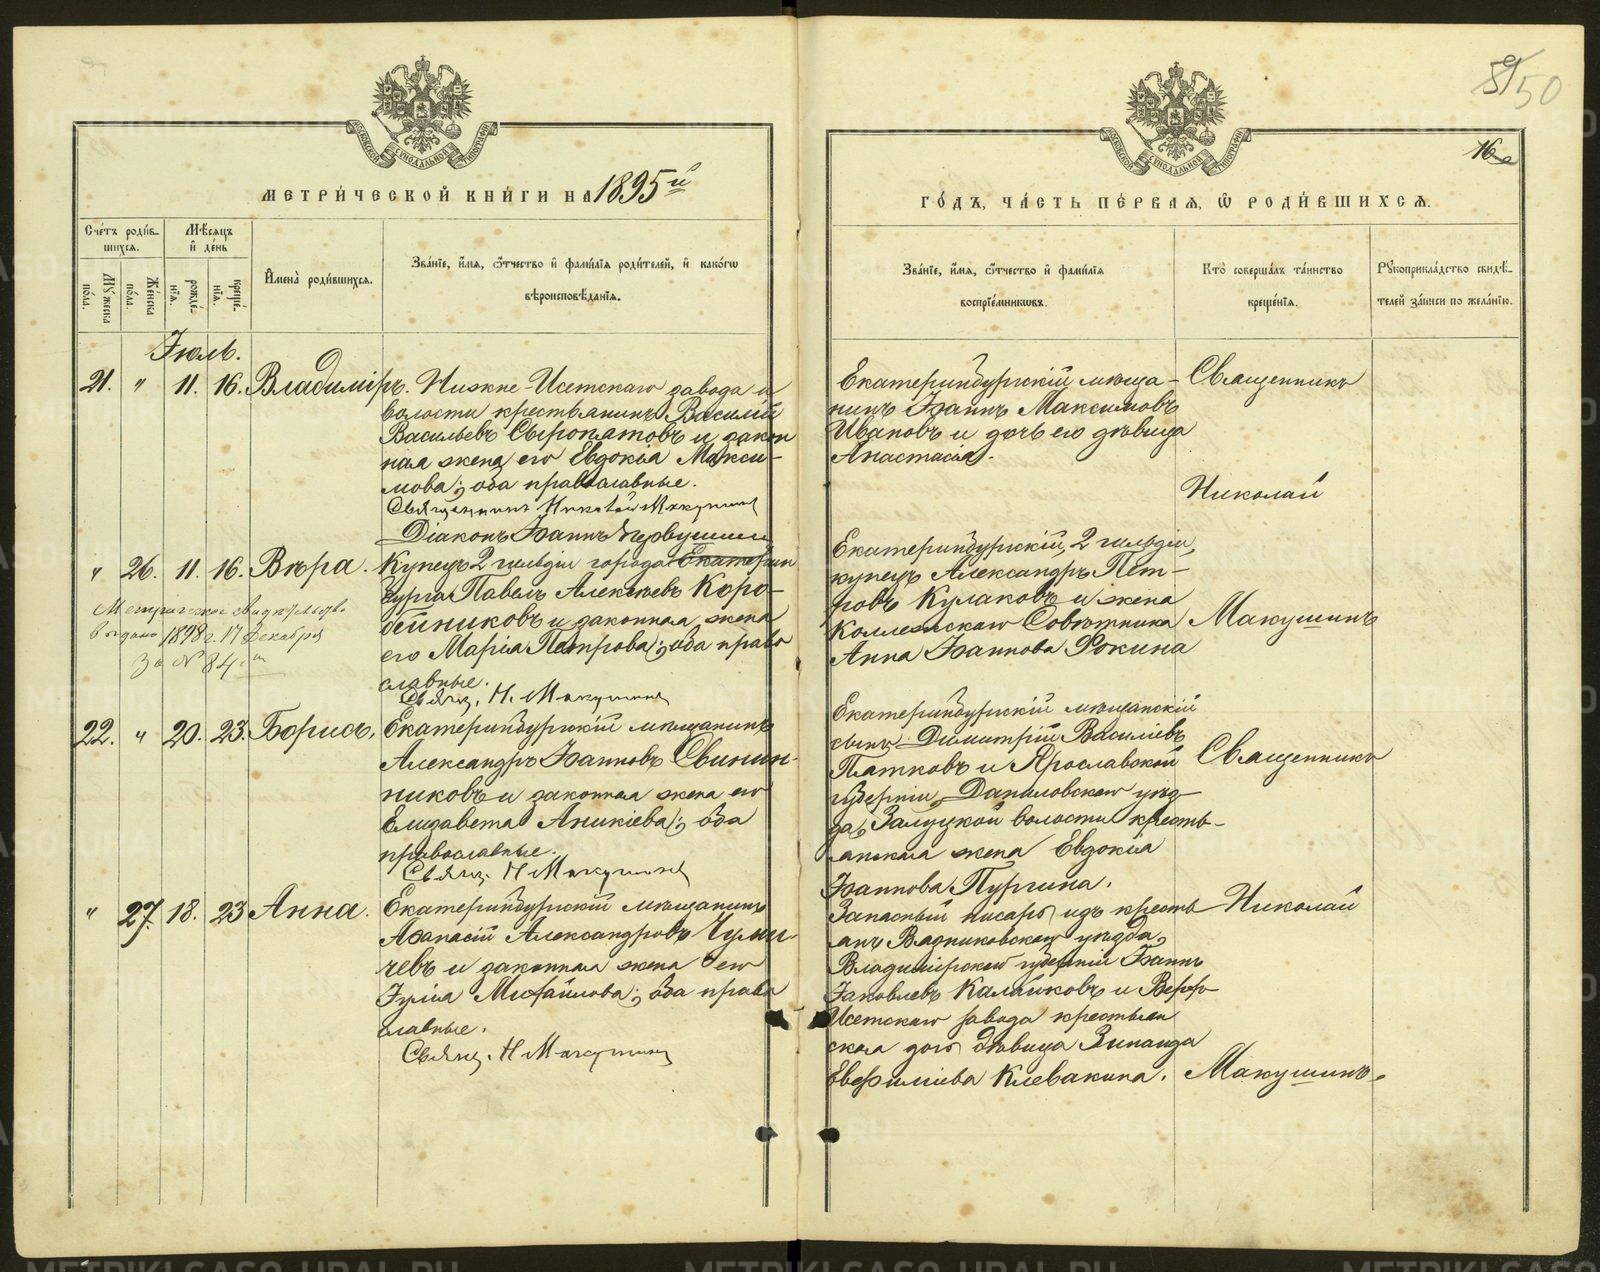 МЕТРИ́ЧЕСКОЙ КНИ́ГИ НА 1895й
Сче́тъ роди́в-
шихсѧ.
Мꙋжеска
по́ла.
Же́нска
по́ла.
Мѣ́сѧцъ
и҆ де́нь
рожде́-
нїѧ.
креще́-
нїѧ.
И҆мена̀ роди́вшихсѧ.
Зва́нїе, и҆́мѧ, ѻ҆́тчество и҆ фами́лїѧ роди́телей, и҆ како́гѡ
вѣроисповѣ́данїѧ.
Іюль.
21. " 11. 16. Владиміръ. Нижне-Исетскаго завода и
волости крестьянинъ Василій
Васильевъ Сыропятовъ и закон
ная жена его Евдокія Макси-
мова; оба православные.
Священникъ Николай Макушинъ
Діаконъ Іоаннъ Первушинъ
" 26. 11. 16. Вѣра. Купецъ 2 гильдіи города Екатерин
бурга Павелъ Алексѣевъ Коро-
бейниковъ и законная жена
его Марія Петрова; оба право
славные.
Свящ. Н. Макушинъ
Метрическое свидѣтельство
выдано 1898 г. 17 декабря
за № 84
22. " 20. 23. Борисъ. Екатеринбургскій мѣщанинъ
Александръ Іоанновъ Свинин-
никовъ и законная жена его
Елизавета Аникіева; оба
православные.
Свящ. Н Макушинъ
" 27. 18. 23 Анна. Екатеринбургскій мѣщанинъ
Аѳанасій Александровъ
чевъ и законная жена его
Іулія Михайлова; оба право
славные.
Свящ. Н Макушинъ
50
16
ГО́ДЪ, ЧА́СТЬ ПЕ́РВАѦ, Ѡ҆ РОДИ́ВШИХСѦ.
Зва́нїе, и҆́мѧ, ѻ҆́тчество и҆ фами́лїѧ
воспрїе́мникѡвъ.
Кто̀ соверша́лъ та́инство
креще́нїѧ.
Рꙋкоприкла́дство свидѣ́-
телей за́писи по жела́нїю.
Екатеринбургскій мѣща-
нинъ Іоаннъ Максимовъ
Ивановъ и дочь его дѣвица
Анастасія.
Священникъ
Николай
Екатеринбургскій 2 гильдіи
купецъ Александръ Пет-
ровъ Кулаковъ и жена
Коллежскаго Совѣтника
Анна Іоаннова Фокина
Макушинъ
Екатеринбургскій мѣщанскій
сынъ Димитрій Василіевъ
Пятковъ и Ярославской
губерніи, Даниловскаго уѣз-
да, Залуцкой волости кресть-
янская жена Евдокія
Іоаннова Пургина.
Священникъ
Запасный писарь изъ кресть
янъ Вязниковскаго уѣзда,
Владимірской губерніи Іоаннъ
Іаковлевъ Калайковъ и Верхъ-
Исетскаго завода крестьян
ская дочь дѣвица Зинаида
Евфиміева Клевакина.
Николай
Макушинъ.